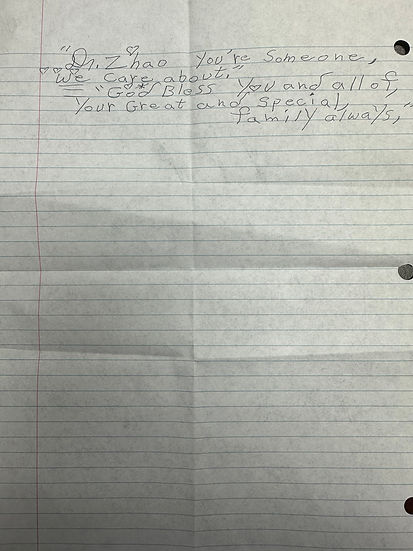 "Dr. Zhao You're Someone,
We Care about."
"God Bless You and all of,
Your Great and Special,
family always,"